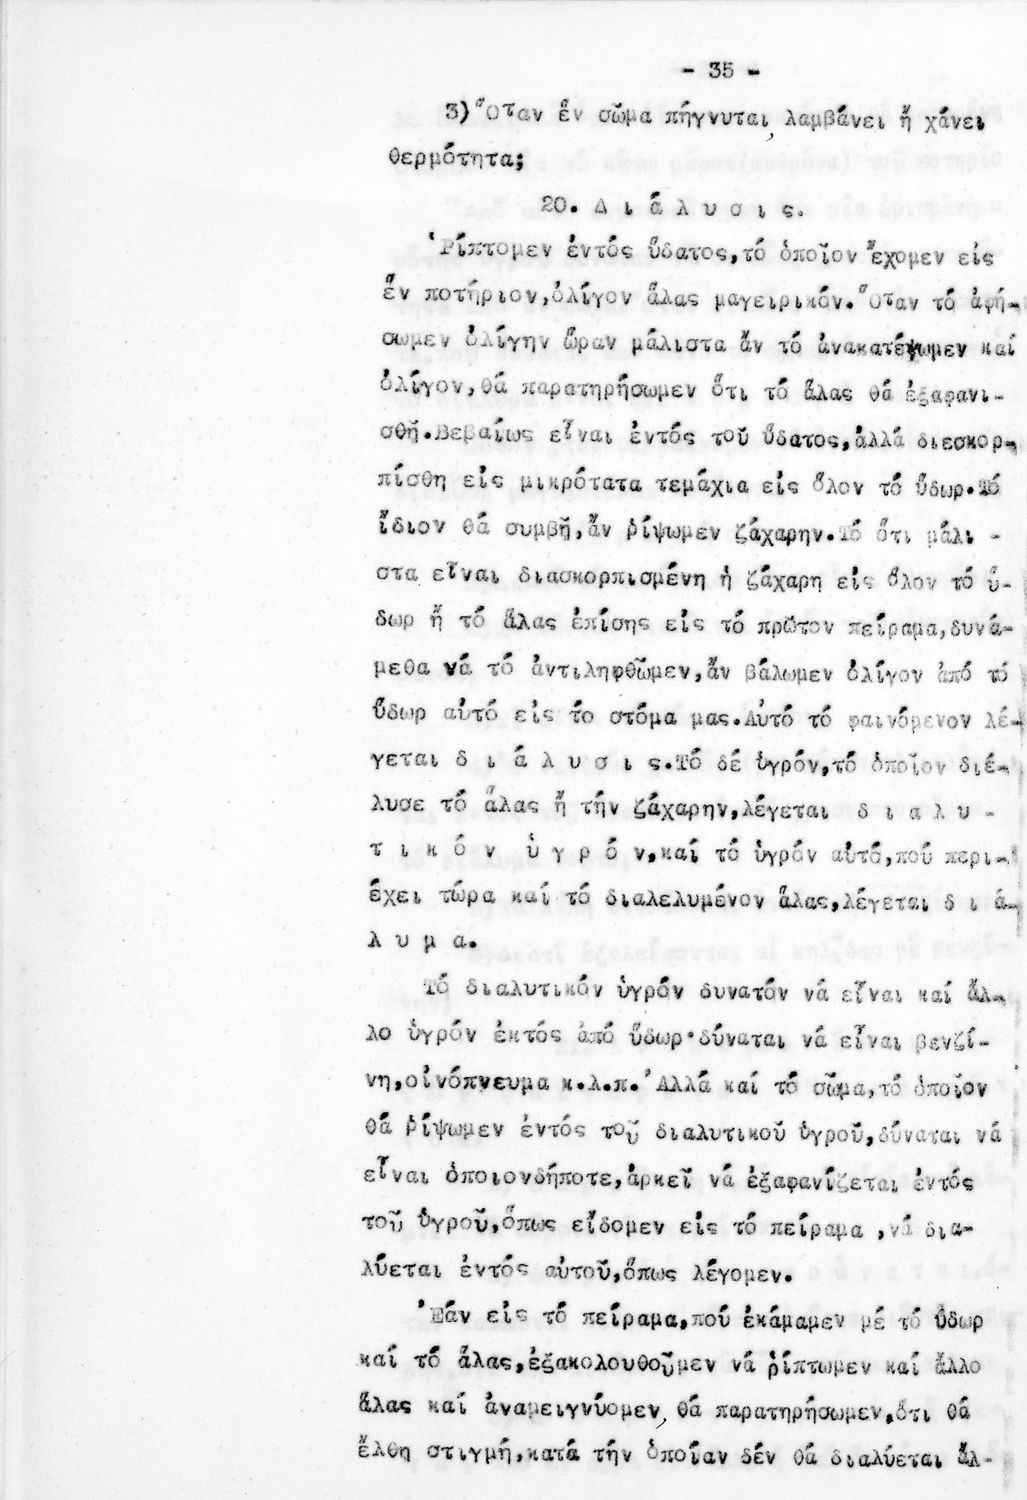 - 35 -
3) Ὅταν ἕν σῶμα πήγνυται, λαμβάνει ἤ χάνει
θερμότητα;
20. Δ ι ά λ υ σ ι ς.
Ῥίπτομεν ἐντός ὕδατος, τό ὁποῖον ἔχομεν εἰς
ἕν ποτήριον, ὀλίγον ἅλας μαγειρικόν. Ὅταν τό ἀφή-
σωμεν ὀλίγην ὥραν μάλιστα ἄν τό ἀνακατέψωμεν καί
ὀλίγον, θά παρατηρήσωμεν ὅτι τό ἅλας θά ἐξαφανι-
σθῇ. Βεβαίως εἶναι ἐντός τοῦ ὕδατος, ἀλλά διεσκορ-
πίσθη εἰς μικρότατα τεμάχια εἰς ὅλον τό ὕδωρ. Τό
ἴδιον θά συμβῇ, ἄν ῥίψωμεν ζάχαρην. Τό ὅτι μάλι -
στα εἶναι διασκορπισμένη ἡ ζάχαρη εἰς ὅλον τό ὕ-
δωρ ἤ τό ἅλας ἐπίσης εἰς τό πρῶτον πείραμα, δυνά-
μεθα νά τό ἀντιληφθῶμεν, ἄν βάλωμεν ὀλίγον ἀπό τό
ὕδωρ αὐτό εἰς το στόμα μας. Αὐτό τό φαινόμενον λέ-
γεται δ ι ά λ υ σ ι ς. Τό δέ ὑγρόν, τό ὁποῖον διέ-
λυσε τό ἅλας ἤ τήν ζάχαρην, λέγεται δ ι α λ υ -
τ ι κ ό ν ὑ γ ρ ό ν, καί τό ὑγρόν αὐτό, πού περι-
έχει τώρα καί τό διαλελυμένον ἅλας, λέγεται δ ι ά-
λ υ μ α.
Τό διαλυτικόν ὑγρόν δυνατόν νά εἶναι καί ἄλ-
λο ὑγρόν ἐκτός ἀπό ὕδωρ· δύναται νά εἶναι βενζί-
νη, οἰνόπνευμα κ.λ.π. Ἀλλά καί τό σῶμα, τό ὁποῖον
θά ῥίψωμεν ἐντός τοῦ διαλυτικοῦ ὑγροῦ, δύναται νά
εἶναι ὁποιονδήποτε, ἀρκεῖ νά ἐξαφανίζεται ἐντός
τοῦ ὑγροῦ, ὅπως εἴδομεν εἰς τό πείραμα , νά δια-
λύεται ἐντός αὐτοῦ, ὅπως λέγομεν.
Ἐάν εἰς τό πείραμα, πού ἐκάμαμεν μέ τό ὕδωρ
καί τό ἅλας, ἐξακολουθοῦμεν νά ῥίπτωμεν καί ἄλλο
ἅλας καί ἀναμειγνύομεν, θά παρατηρήσωμεν, ὅτι θά
ἔλθη στιγμή, κατά τήν ὁποίαν δέν θά διαλύεται ἄλ-